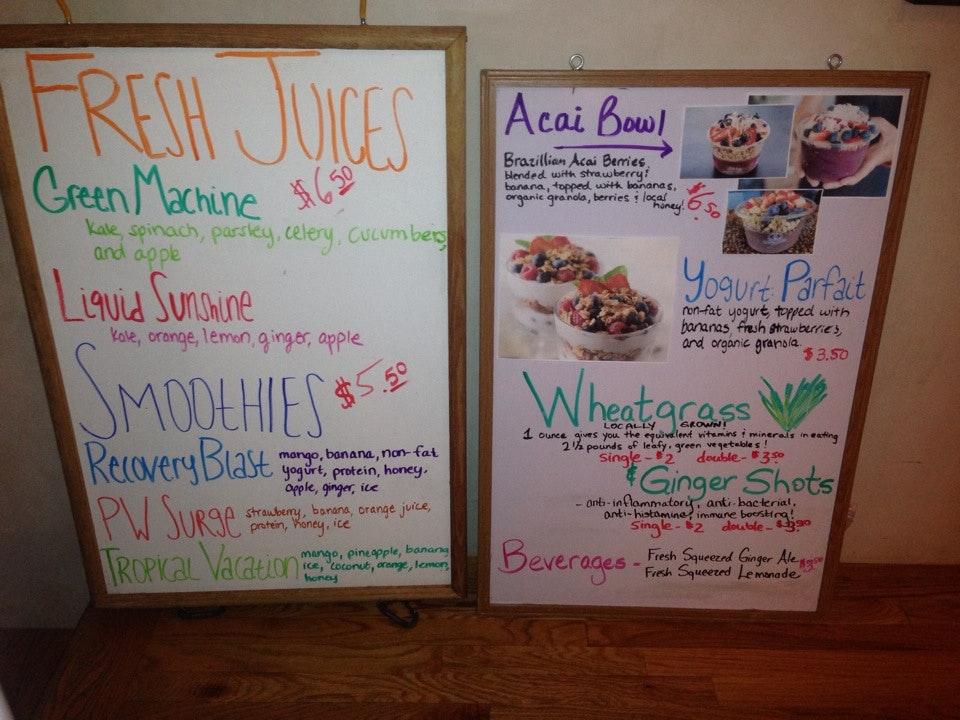 FRESH JUICES
Green Machine $6.50
kale, spinach, parsley, celery, cucumbers,
and apple
Liquid Sunshine
kale, orange, lemon, ginger, apple
SMOOTHIES $5.50
Recovery Blast mango, banana, non-fat
yogurt, protein, honey,
apple, ginger, ice
PW Surge strawberry, banana, orange juice,
protein, honey, ice
Tropical Vacation mango, pineapple, banana,
ice, coconut, orange, lemon,
honey
Acai Bowl
Brazillian Acai Berries,
blended with strawberry &
banana, topped with bananas,
organic granola, berries & local
honey! $6.50
Yogurt Parfait
non-fat yogurt, topped with
bananas, fresh strawberries,
and organic granola.
$3.50
Wheatgrass
LOCALLY GROWN!
1 ounce gives you the equivalent vitamins & minerals in eating
2 1/2 pounds of leafy, green vegetables!
single - $2 double - $3.50
& Ginger Shots
- anti-inflammatory, anti-bacterial,
anti-histamine, immune boosting!
Single - $2 double - $3.50
Beverages - Fresh Squeezed Ginger Ale $3.50
Fresh Squeezed Lemonade